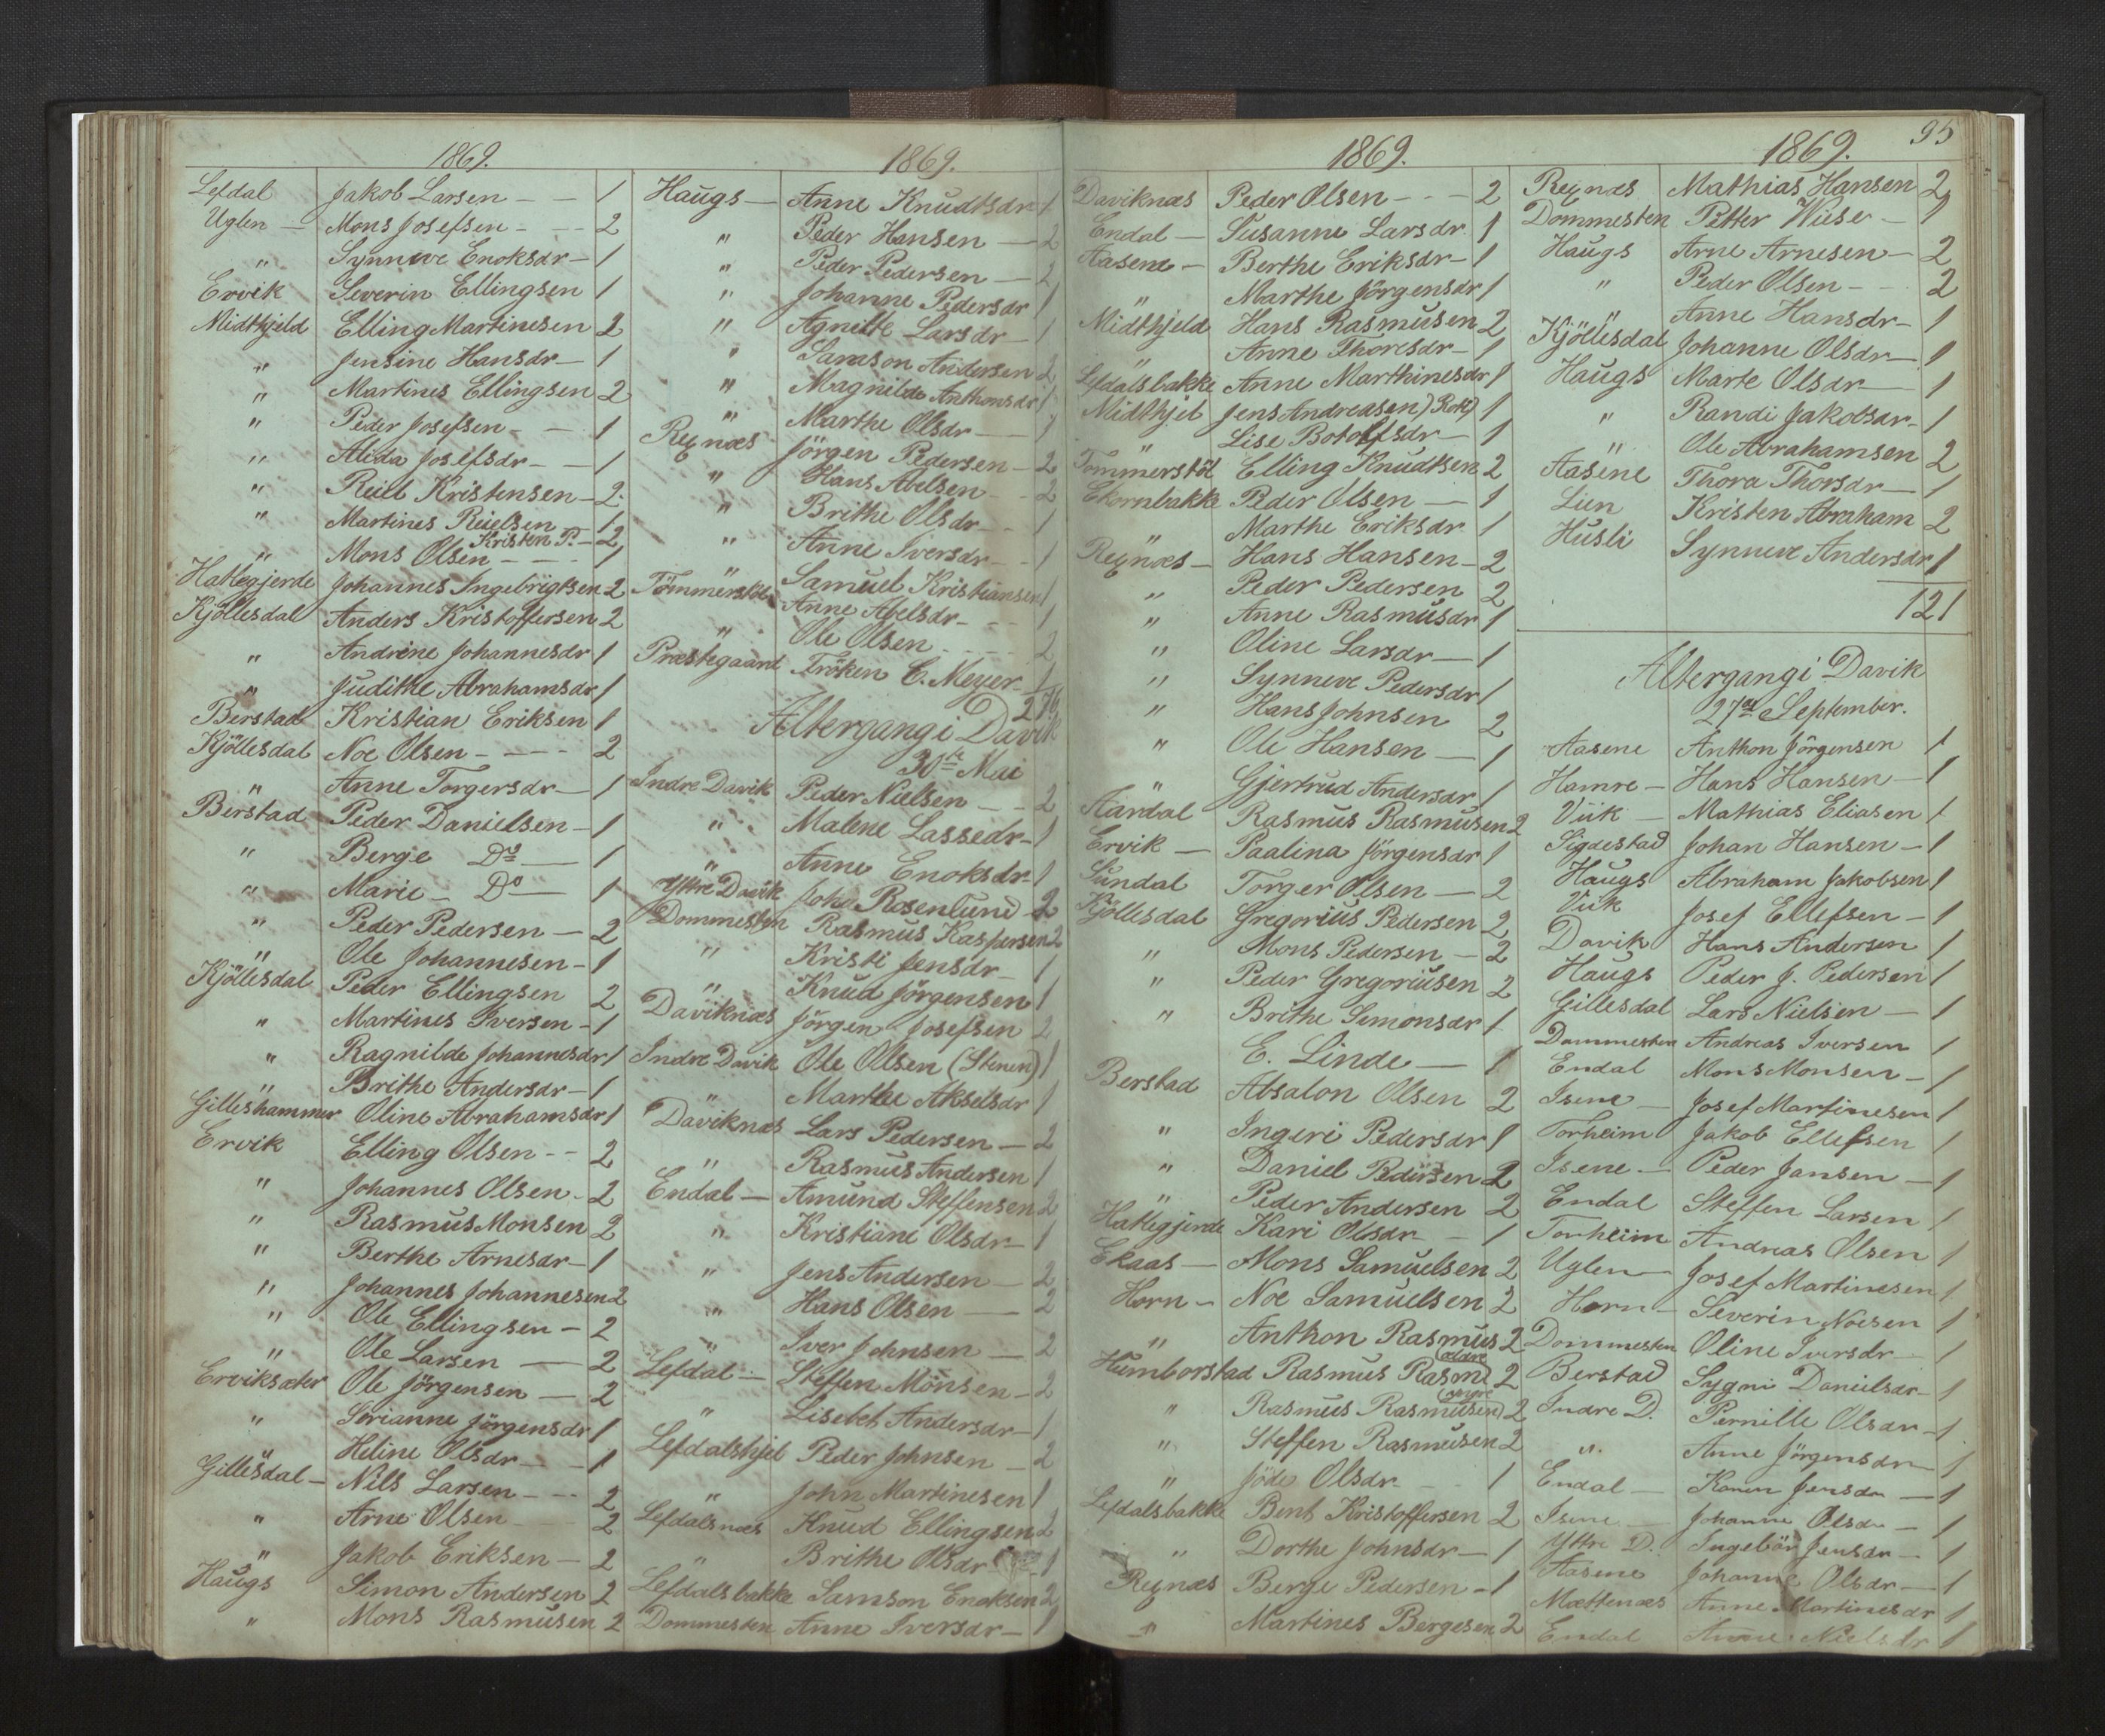 1869.
Lefdal Jakob Larsen - - 1
Uglen - Mons Josefsen - - - 2
" Synneve Enoksdr - 1
Ervik Severin Ellingsen 1
Midthjeld Elling Martinesen 2
" Jensine Hansdr - 1
" Martines Ellingsen 2
" Peder Josefsen - - 1
" Alida Josefsdr - - 1
" Reiel Kristensen - 2
" Martines Reielsen 1
Kristen P. - 2
" Mons Olsen - - - - 1
Hatlegjerde Johannes Ingebrigtsen 2
Kjöllesdal Anders Kristoffersen 2
" Andrine Johannesdr 1
" Judithe Abrahamsdr 1
Berstad Kristian Eriksen 1
Kjöllesdal Noe Olsen - - - - 2
" Anne Torgersdr - 1
Berstad Peder Danielsen - 1
" Berge Do - 1
" Marie - Do - 1
" Peder Pedersen - 2
" Ole Johannesen - 1
Kjöllesdal Peder Ellingsen 2
" Martines Iversen - 1
" Ragnilde Johannesdr 1
" Brithe Andersdr - 1
Gilleshammer Oline Abrahamsdr 1
Ervik Elling Olsen - - 2
" Johannes Olsen - 2
" Rasmus Monsen 2
" Berthe Arnesdr - 1
" Johannes Johannesen 2
" Ole Ellingsen - 2
" Ole Larsen - 2
Erviksæter Ole Jörgensen - 2
" Serianne Jörgensdr 1
" Heline Olsdr - - 1
Gillesdal - Nils Larsen - - - 2
" Arne Olsen - 2
" Jakob Eriksen - 2
Haugs Simon Andersen 2
" Mons Rasmusen 2
1869.
Haugs - Anne Knudtsdr - 1
" Peder Hansen - 2
" Peder Pedersen - 2
" Johanne Pedersdr 1
" Agnitte Larsdr - 1
" Samson Andersen 2
" Magnilde Anthonsdr 1
" Marthe Olsdr - 1
Rexnæs Jörgen Pedersen - 2
" Hans Abelsen - - 2
" Brithe Olsdr - - 1
" Anne Iversdr - - 1
Tömmerstöl Samuel Kristiansen 1
" Anne Abelsdr - - - 1
" Ole Olsen - - - - 2
Præstegaard Fröken C. Meyer - 1
276
Altergang i Davik
30te Mai
Indre Davik Peder Nielsen - - 2
" Malene Lassedr - 1
" Anne Enoksdr - 1
Yttre Davik Joh. Rosenlund - 2
Dommesten Rasmus Kaspersen 2
" Kristi Jensdr - 1
" Knud Jörgensen 1
Daviknæs Jörgen Josefsen 2
Indre Davik Ole Olsen (Stenen) 1
" Marthe Akselsdr 1
Daviknæs Lars Pedersen - 2
" Rasmus Andersen 1
Endal - Amund Steffensen 2
" Kristiane Olsdr - 1
" Jens Andersen - 2
" Hans Olsen - 2
" Iver Johnsen - 2
Lefdal - Steffen Monsen - 2
" Lisebet Andersdr - 1
Lefdalshjel Peder Johnsen - 2
" John Martinesen 1
Lefdalsnæs Knud Ellingsen 2
" Brithe Olsdr 1
Lefdalsbakke Samson Enoksen 2
Dommesten Anne Iversdr - 1
1869.
Daviknæs Peder Olsen - - - 2
Endal - Susanne Larsdr. 1
Aasene - Berthe Eriksdr - 1
" Marthe Jörgensdr 1
Midthjeld Hans Rasmusen 2
" Anne Thoresdr - 1
Lefdalsbakke Anne Marthinesdr 1
Midthjel Jens Andreasen) 1
" Lise Botolfsdr - 1
Tömmerstöl Elling Knudtsen 2
Ekornbakke Peder Olsen - 1
" Marthe Eriksdr 1
Rexnæs - Hans Hansen - 2
" Peder Pedersen 2
" Anne Rasmusdr 1
" Oline Larsdr - 1
" Synneve Pedersdr 1
" Hans Johnsen 2
" Ole Hansen - 1
" Gjertrud Andersdr 1
Aardal Rasmus Rasmusen 2
Ervik - Paalina Jörgensdr 1
Sundal Torger Olsen - 2
Kjöllesdal Gregorius Pedersen 2
" Mons Pedersen - 2
" Peder Gregoriusen 2
" Brithe Simonsdr 1
E. Linde - 1
Berstad Absalon Olsen 2
" Ingeri Pedersdr 1
" Daniel Pedersen 2
" Peder Andersen 2
Hatlegjerde Kari Olsdr - 1
Ekaas - Mons Samuelsen 2
Horn - Noe Samuelsen 2
" Anthon Rasmus 2
Humborstad Rasmus Rasm. ældre 2
" Rasmus Rasmusen (yngre) 2
" Steffen Rasmusen 2
" Jöde Olsdr - - 1
Lefdalsbakke Bent Kristoffersen 2
" Dorthe Johnsdr - 1
Rexnæs Berge Pedersen - 1
" Martines Bergesen 2
1869. 95
Rexnæs Mathias Hansen 2
Dommesten Petter Wiese - 1
Haugs Arne Arnesen - 2
" Peder Olsen - - 2
" Anne Hansdr - 1
Kjöllesdal Johanne Olsdr - 1
Haugs Marte Olsdr - 1
" Randi Jakobsdr - 1
" Ole Abrahamsen 2
Aasene Thora Thorsdr - 1
Lien Kristen Abraham 2
Husli Synneve Andersdr 1
121
Altergang i Davik
27de September.
Aasene Anthon Jörgensen 1
Hamre - Hans Hansen - 1
Viik - Mathias Eliasen 1
Sigdestad Johan Hansen - 1
Haugs Abraham Jakobsen 1
Viik Josef Ellefsen - 1
Davik Hans Andersen 1
Haugs Peder J. Pedersen 1
Gillesdal Lars Nielsen - 1
Dommesten Andreas Iversen 1
Endal Mons Monsen - 1
Isene - Josef Martinesen 1
Torheim Jakob Ellefsen 1
Isene - Peder Jansen - 1
Endal Steffen Larsen 1
Torheim Andreas Olsen 1
Uglen - Josef Martinesen 1
Horn - Severin Noesen 1
Dommesten Oline Iversdr - 1
Berstad Sygni Danielsdr - 1
Indre D. Pernille Olsdr - 1
" Anne Jörgensdr - 1
Endal - Karen Jensdr - 1
Isene - Johanne Olsdr - 1
Yttre D. Ingebör Jensdr - 1
Aasene Johanne Olsdr - 1
Mættenæs Anne Martinesdr 1
Endal Anne Nielsdr 1